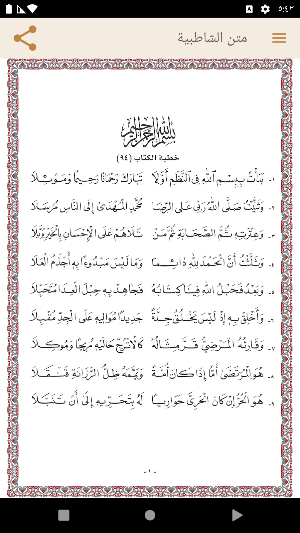 ٥:٤٣
متن الشاطبية
بسم الله الرحمن الرحيم
خطبة الكتاب (٩٤)
١- بَدَأْتُ بِبِسْمِ اللَّهِ فِي النَّظْمِ أَوَّلَا تَبَارَكَ رَحْمَانًا رَحِيمًا وَمَوْئِلَا
٢- وَثَنَّيْتُ صَلَّى اللَّهُ رَبِّي عَلَى الرِّضَا مُحَمَّدٍ الْمُهْدَى إِلَى النَّاسِ مُرْسَلَا
٣- وَعِتْرَتِهِ ثُمَّ الصَّحَابَةِ ثُمَّ مَنْ تَلَاهُمْ عَلَى الْإِحْسَانِ بِالْخَيْرِ وُبَّلَا
٤- وَثَلَّثْتُ أَنَّ الْحَمْدَ لِلَّهِ دَائِمًا وَمَا لَيْسَ مَبْدُوءًا بِهِ أَجْذَمُ الْعَلَا
٥- وَبَعْدُ فَحَبْلُ اللَّهِ فِينَا كِتَابُهُ فَجَاهِدْ بِهِ حِبْلَ الْعِدَا مُتَحَبِّلَا
٦- وَأَخْلِقْ بِهِ إِذْ لَيْسَ يَخْلُقُ جِدَّةً جَدِيدًا مُوَالِيهِ عَلَى الْجِدِّ مُقْبِلَا
٧- وَقَارِئُهُ الْمَرْضِيُّ قَرَّ مِثَالُهُ كَالْاتْرُجِّ حَالَيْهِ مُرِيحًا وَمُوكِلَا
٨- هُوَ الْمُرْتَضَى أَمًّا إِذَا كَانَ أُمَّةً وَيَمَّمَهُ ظِلُّ الرَّزَانَةِ قَنْقَلَا
٩- هُوَ الْحُرُّ إِنْ كَانَ الْحَرِيَّ حَوَارِيًا لَهُ بِتَحَرِّيهِ إِلَى أَنْ تَنَبَّلَا
-١-